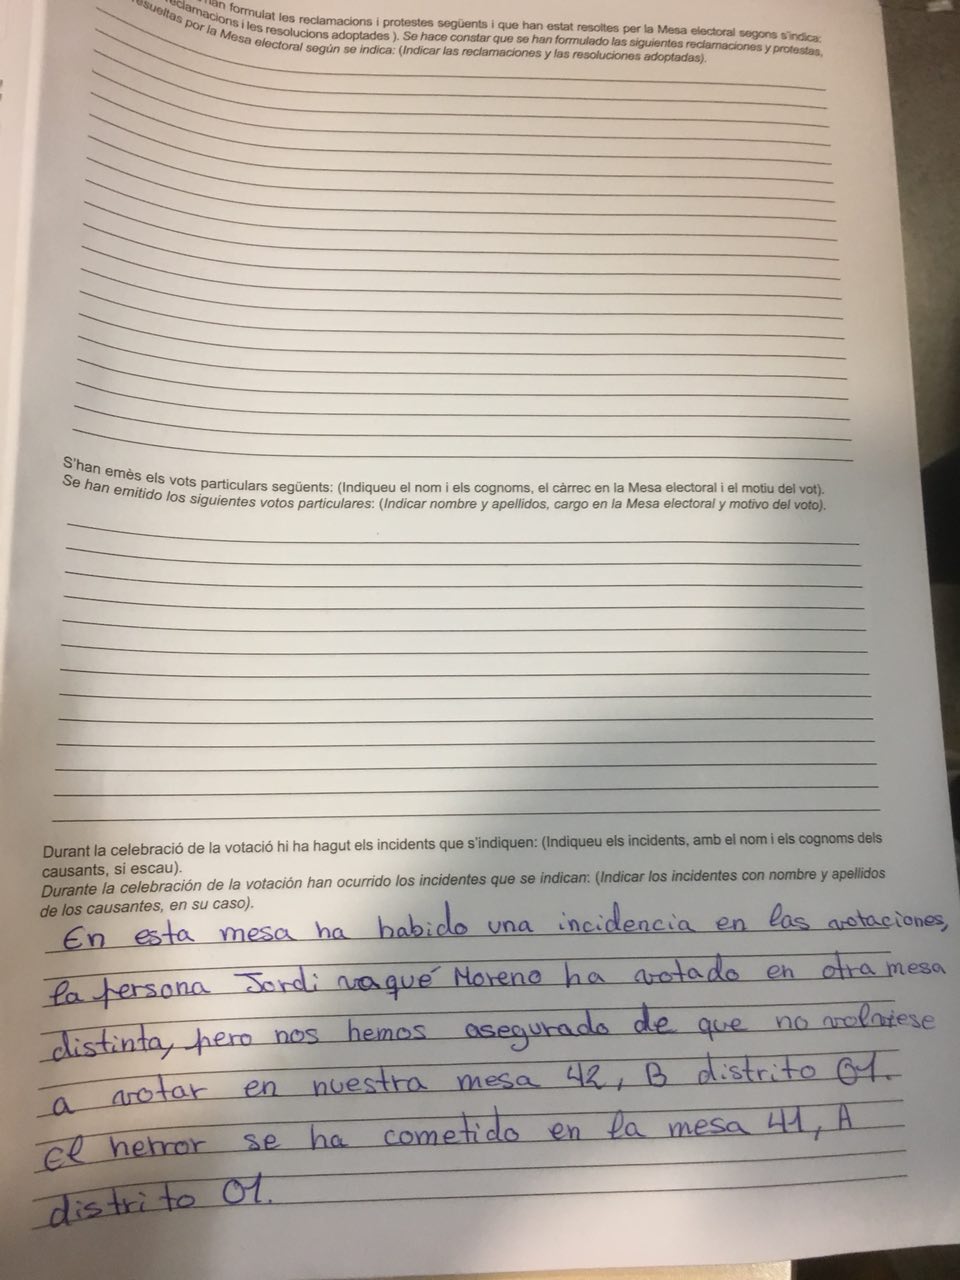 han formulat les reclamacions i protestes següents i que han estat resoltes per la Mesa electoral segons s'indica:
reclamacions i les resolucions adoptades ). Se hace constar que se han formulado las siguientes reclamaciones y protestas,
resueltas por la Mesa electoral según se indica: (Indicar las reclamaciones y las resoluciones adoptadas).
S'han emès els vots particulars següents: (Indiqueu el nom i els cognoms, el càrrec en la Mesa electoral i el motiu del vot).
Se han emitido los siguientes votos particulares: (Indicar nombre y apellidos, cargo en la Mesa electoral y motivo del voto).
Durant la celebració de la votació hi ha hagut els incidents que s'indiquen: (Indiqueu els incidents, amb el nom i els cognoms dels
causants, si escau).
Durante la celebración de la votación han ocurrido los incidentes que se indican: (Indicar los incidentes con nombre y apellidos
de los causantes, en su caso).
En esta mesa ha habido una incidencia en las votaciones,
la persona Jordi vaqué Moreno ha votado en otra mesa
distinta, pero nos hemos asegurado de que no volviese
a votar en nuestra mesa 42, B distrito 01.
el herror se ha cometido en la mesa 41, A
distrito 01.